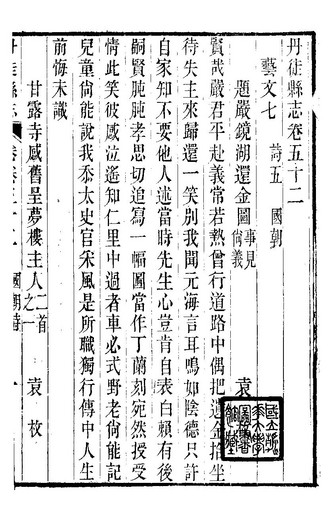 丹徒縣志卷五十二
藝文七 詩五 國朝
題嚴鏡湖還金圖 事見尚義 袁枚
賢哉嚴君平赴義常若熱曾行道路中偶把遺金拾坐
待失主來歸還一笑別我聞元海言耳鳴如陰德只許
自家知不要他人述當時先生心豈肯自表白賴有後
嗣賢肫肫孝思切追寫一幅圖當作丁蘭刻宛然授受
情此笑彼感泣遥知仁里中過者車必式野老尙能記
兒童尙能說我忝太史官采風是所職獨行傳中人生
前悔未識
甘露寺感舊呈夢樓主人 二首之一 袁枚
丹徒縣志 卷五十二 國朝詩 一